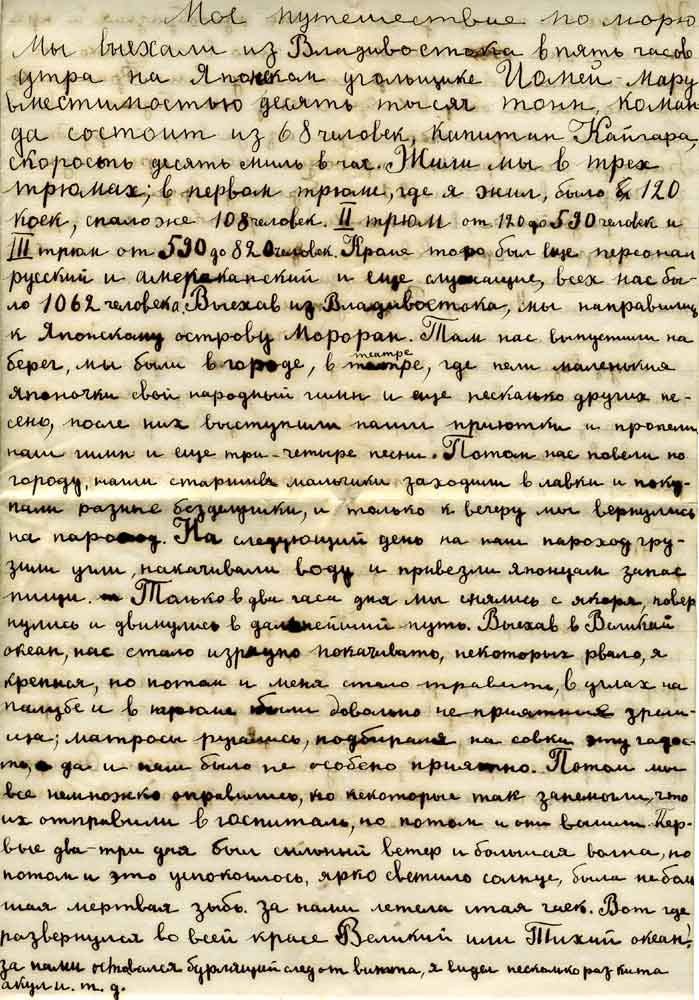 Моё путешествие по морю
Мы выехали из Владивостока в пять часов
утра на Японском угольщике Йомей-Мару
вместимостью десять тысяч тонн, коман
да состоит из 68 человек, капитан Кайгара,
скорость десять миль в час. Жили мы в трех
трюмах; в первом трюме, где я жил, было 120
коек, спало же 108 человек. II трюм от 120 до 530 человек и
III трюм от 530 до 820 человек. Кроме того был еще персонал
русский и американский и еще служащие, всех нас бы-
ло 1062 человека. Выехав из Владивостока, мы направились
к Японскому острову Мороран. Там нас выпустили на
берег, мы были в городе, в театре, где пели маленькия
японочки свой народный гимн и еще несколько других пе-
сень, после них выступили наши приютки и пропели
наш гимн и еще три-четыре песни. Потом нас повели по
городу, наши старшие мальчики заходили в лавки и поку-
пали разные безделушки, и только к вечеру мы вернулись
на пароход. На следующий день на наш пароход гру-
зили угли, накачивали воду и привезли японцам запас
пищи. Только в два часа дня мы снялись с якоря, повер
нулись и двинулись в дальнейший путь. Выехав в Великий
океан, нас стало изрядно покачивать, некоторых рвало, я
крепился, но потом и меня стало травить, в углах на
палубе и в трюме были довольно не приятния зрели-
ща; матросы ругались, подбирая на совки эту гадос-
ть, да и нам было не особено приятно. Потом мы
все немножко оправились, но некоторые так занемогли, что
их отправили в госпиталь, но потом и они вышли. Пер-
вые два-три дня был сильный ветер и большая волна, но
потом и это успокоилось, ярко светило солнце, была не боль
шая мертвая зыбь. за нами летела стая чаек. Вот где
развернулся во всей красе Великий или Тихий океан!
за нами оставался бурлящий след от винта, я видел несколько раз кита
акул и. т. д.